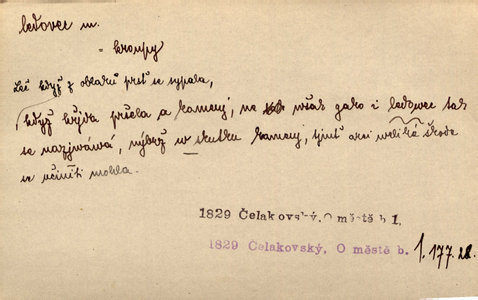 ledovec m.
= kroupy
Leč když z oblaků prsť se sypala,
když křída pršela a kamení, ne však gako i ledowec tak
se nazýwáwá, nýbrž w skutku kamení, gimž ani weliká škoda
se učiniti mohla.
1829 Čelakovský, O městě b 1.
1829 Čelakovský, O městě b. 1. 177. 28.